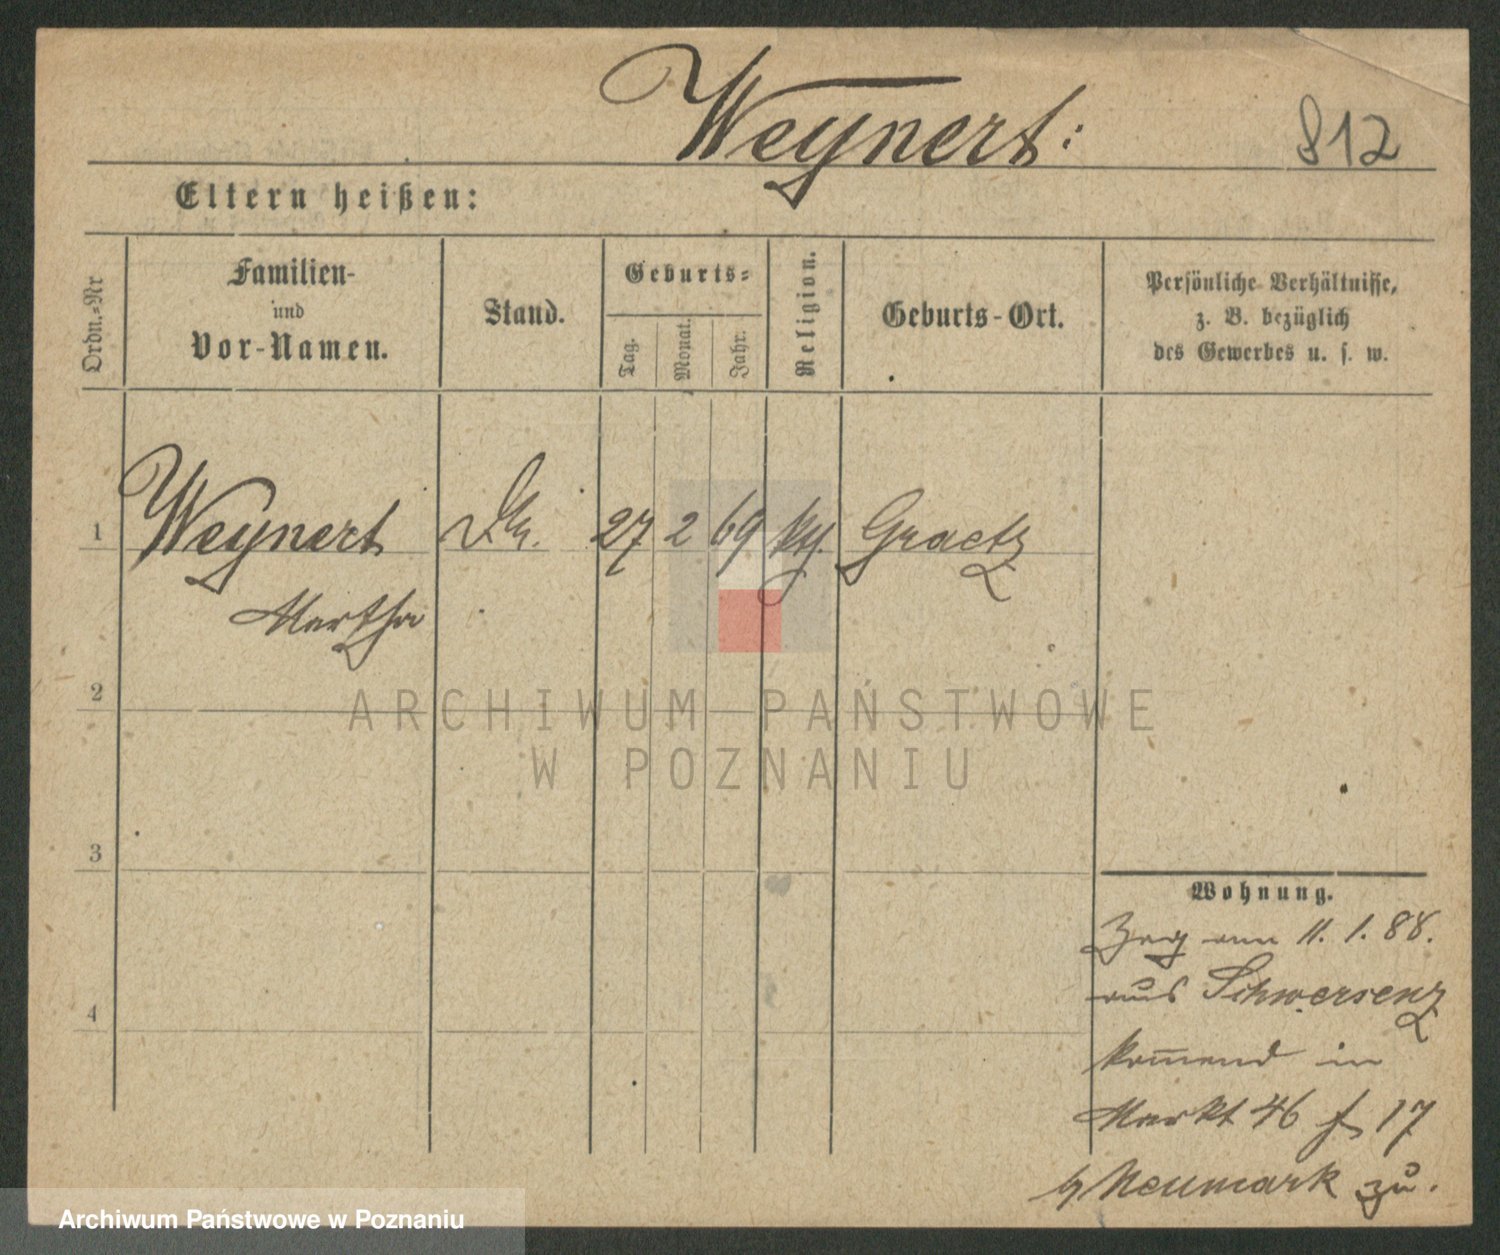 Weynert:
812
Eltern heißen:
Ordn.-Nr
Familien-
und
Vor-Namen.
Stand.
Geburts-
Tag.
Monat.
Jahr.
Religion.
Geburts-Ort.
Persönliche Verhältnisse,
z. B. bezüglich
des Gewerbes u. s. w.
1
Weynert
27 2 69
Graetz
Martha
2
ARCHIWUM PAŃSTWOWE
W POZNANIU
3
Wohnung.
am 11. 1. 88.
aus Schwersenz
4
kom̅end in
Markt 46 17
Neumark zu.
Archiwum Państwowe w Poznaniu